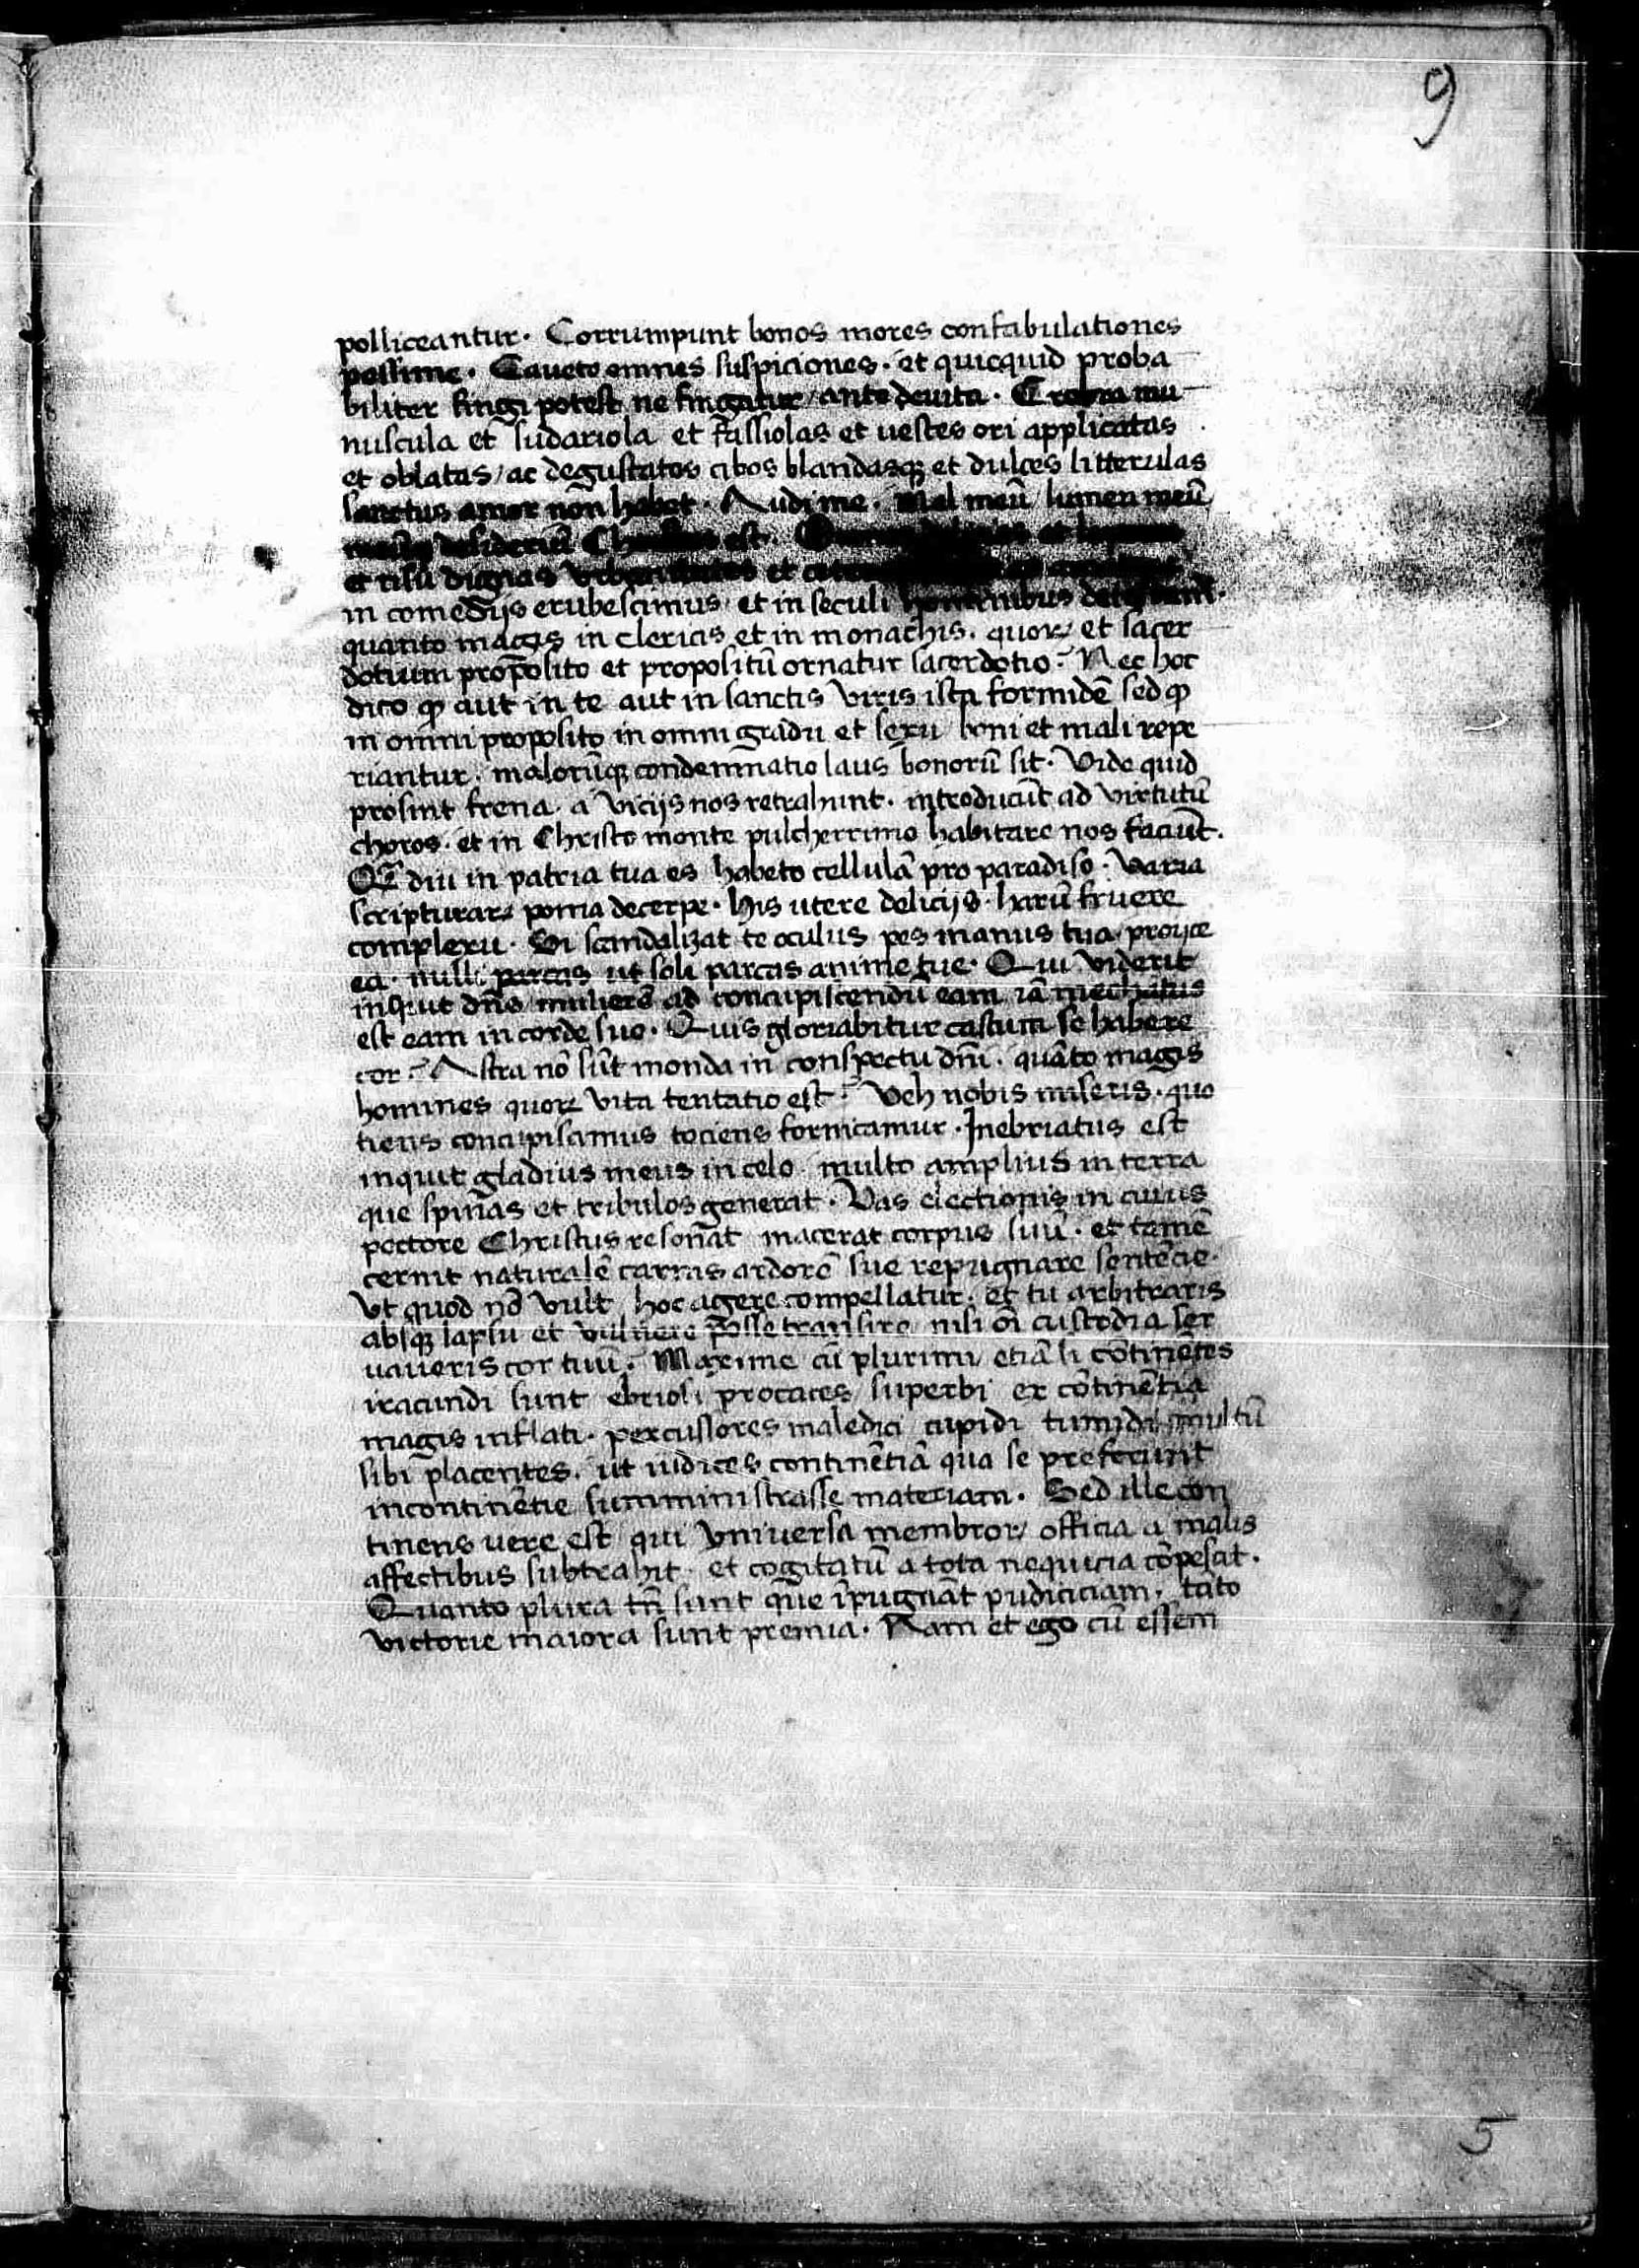 9
polliceantur. Corrumpunt bonos mores confabulationes
pessime. Caueto omnes suspiciones. et quicquid proba
biliter fingi potest ne fingatur/ ante deuita. Crebra mu
nuscula et sudariola et fassiolas et uestes ori applicatas
et oblatas/ ac degustatos cibos blandasqȝ et dulces litterulas
sanctus amor non habet. Audi me. Mel meū/ lumen meū
desideriū Christus est.
et risu dignas urbanitates et
in comedijs erubescimus/ et in seculi hominibus detestam̄.
quanto magis in clericis et in monachis. quoꝝ et sacer
dotium proposito et propositū ornatur sacerdotio? Nec hoc
dico ꝙ aut in te aut in sanctis viris ista formidē sed ꝙ
in omni proposito in omni gradu et sexu boni et mali repe
riantur. malorūqȝ condemnatio laus bonorū sit. Vide quid
prosint frena. a vicijs nos retrahunt. introducūt ad virtutū
choros. et in Christo monte pulcherrimo habitare nos faciūt.
Qādiu in patria tua es habeto cellulā pro paradiso. Varia
scripturaꝝ poma decerpe. his utere delicijs. harū fruere
complexu. Si scandalizat te oculus pes manus tua proijce
ea. nulli parcas ut soli parcas anime tue. Qui viderit
inquit dn̄s mulierē ad concupiscendū eam iā mechatus
est eam in corde suo. Quis gloriabitur castum se habere
cor? Astra nō sūt monda in conspectu dn̄i. quāto magis
homines quoꝝ vita tentatio est? Veh nobis miseris. quo
tiens concupiscimus tociens fornicamur. Inebriatus est
inquit gladius meus in celo multo amplius in terra
que spinas et tribulos generat. Vas electionis in cuius
pectore Christus resonat macerat corpus suū. et tamē
cernit naturalē carnis ardorē sue repugnare sentēcie.
Vt quod nō vult hoc agere compellatur. et tu arbitraris
absqȝ lapsu et vulnere posse transire nisi oī custodia ser
uaueris cor tuū? Maxime cū plurimi etiā si cōtinētes
iracundi sunt ebriosi procaces superbi ex cōtinētia
magis inflati. percussores maledici cupidi timidi multū
sibi placentes. ut iudices continētiā qua se preferunt
incontinētie sumministrasse materiam. Sed ille con
tinens uere est qui vniuersa membroꝝ officia a malis
affectibus subtrahit. et cogitatū a tota nequicia cōpescit.
Quanto plura tn̄ sunt que īpugnāt pudiciciam. tāto
victorie maiora sunt premia. Nam et ego cū essem
5